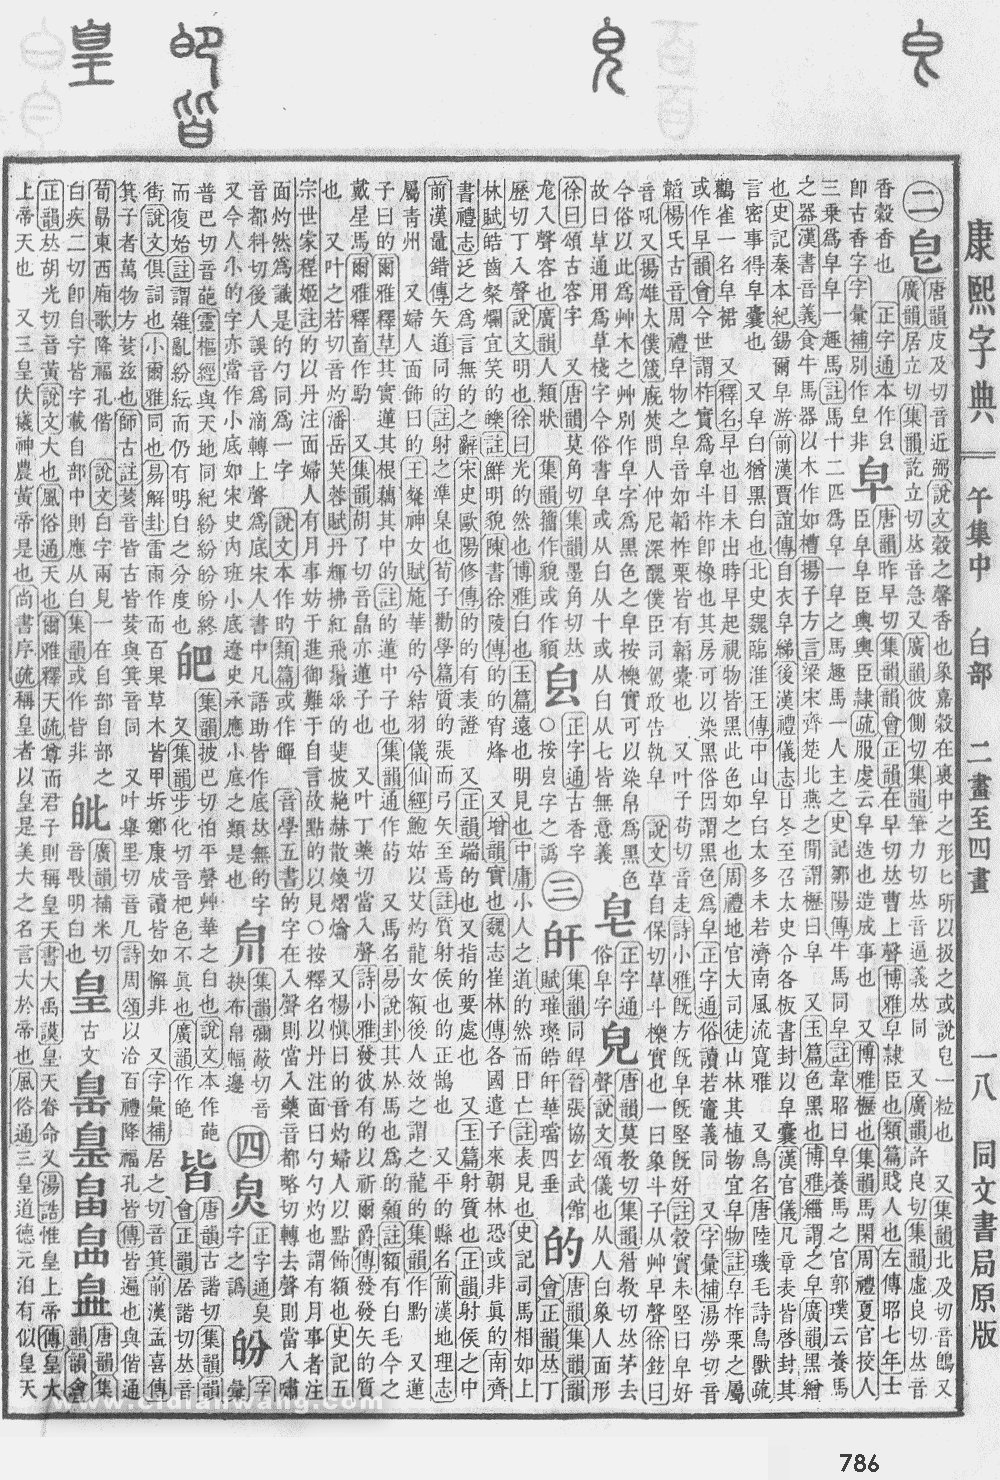 康熙字典 午集中 白部 二畫至四畫 一八 同文書局原版
二皀 唐韻皮及切音近弼說文穀之馨香也象嘉穀在裹中之形匕所以扱之或說皀一粒也 又集韻北及切音鵖又
廣韻居立切集韻訖立切𠀤音急又廣韻彼側切集韻筆力切𠀤音逼義𠀤同 又廣韻許良切集韻虛良切𠀤音
香穀香也 正字通本作皀
卽古香字字彙補別作皁非
皁 唐韻昨早切集韻韻會正韻在早切𠀤曹上聲博雅皁隸臣也類篇賤人也左傳昭七年士
臣皁皁臣輿輿臣隸疏服虔云皁造也造成事也 又博雅櫪也集韻馬閑周禮夏官挍人
三乗爲皁皁一趣馬註馬十二匹爲皁一皁之馬趣馬一人主之史記鄒陽傳牛馬同皁註韋昭曰皁養馬之官郭璞云養馬
之器漢書音義食牛馬器以木作如槽揚子方言梁宋齊楚北燕之閒謂櫪曰皁 又玉篇色黑也博雅緇謂之皁廣韻黑繒
也史記秦本紀錫爾皁游前漢賈誼傳自衣皁綈後漢禮儀志日冬至召太史令各板書封以皁囊漢官儀凡章表皆啓封其
言密事得皁囊也 又皁白猶黑白也北史魏臨淮王傳中山皁白太多未若濟南風流寬雅 又鳥名唐陸璣毛詩鳥獸疏
鸛雀一名皁裙 又釋名皁早也日未出時早起視物皆黑此色如之也周禮地官大司徒山林其植物宜皁物註皁柞栗之屬
或作早韻會今世謂柞實爲皁斗柞卽橡也其房可以染黑俗因謂黑色爲皁正字通俗讀若竈義同 又字彙補湯勞切音
韜楊氏古音周禮皁物之皁音如韜柞栗皆有韜彙也 又叶子苟切音走詩小雅旣方旣皁旣堅旣好註穀實未堅曰皁好
音吼又揚雄太僕箴廄焚問人仲尼深醜僕臣司駕敢告執皁 說文草自保切草斗櫟實也一曰象斗子从艸早聲徐鉉曰
今俗以此爲艸木之艸別作皁字爲黑色之皁按櫟實可以染帛爲黑色
故曰草通用爲草棧字今俗書皁或从白从十或从白从七皆無意義
皂 正字通
俗皁字
皃 唐韻莫敎切集韻眉敎切𠀤茅去
聲說文頌儀也从人白象人面形
徐曰頌古容字 又唐韻莫角切集韻墨角切𠀤
尨入聲容也廣韻人類狀 集韻籀作貌或作䫉
㿝 正字通古香字
○按㿝字之譌
三皯 集韻同皔晉張協玄武館
賦璀璨皓皯華璫四垂
的 唐韻集韻韻
會正韻𠀤丁
歷切丁入聲說文明也徐曰光的然也博雅白也玉篇遠也明見也中庸小人之道的然而日亡註表見也史記司馬相如上
林賦皓齒粲爛宜笑的皪註鮮明貌陳書徐陵傳的的宵烽 又增韻實也魏志崔林傳各國遣子來朝林恐或非眞的南齊
書禮志泛之爲言無的之辭宋史歐陽修傳的的有表證 又正韻端的也又指的要處也 又玉篇射質也正韻射侯之中
前漢鼂錯傳矢道同的註射之準臬也荀子勸學篇質的張而弓矢至焉註質射侯也的正鵠也 又平的縣名前漢地理志
屬青州 又婦人面飾曰的王粲神女賦施華的兮結羽儀仙經鮑姑以艾灼龍女額後人效之謂之龍的集韻作䵠 又蓮
子曰的爾雅釋草其實蓮其根藕其中的註的蓮中子也集韻通作菂 又馬名易說卦其於馬也爲的顙註額有白毛今之
戴星馬爾雅釋畜作馰 又集韻胡了切音皛亦蓮子也 又叶丁藥切當入聲詩小雅發彼有的以祈爾爵傳發發矢的的質
也 又叶之若切音灼潘岳芙蓉賦丹輝拂紅飛鬚垂的斐披赩赫散煥熠爚 又楊愼曰的音灼婦人以點飾額也史記五
宗世家程姬註的以丹注面婦人有月事妨于進御難于自言故點的以見○按釋名以丹注面曰勺勺灼也謂有月事者注
面灼然爲識是的勺同爲一字 說文本作旳類篇或作䁖 音學五書的字在入聲則當入藥音都略切轉去聲則當入嘯
音都料切後人誤音爲滴轉上聲爲底宋人書中凡語助皆作底𠀤無的字
又今人小的字亦當作小底如宋史內班小底遼史承應小底之類是也
㿟 集韻彌蔽切音
抉布帛幅邊
四㒵 正字通㒵
字之譌
㿞 字彙
普巴切音葩靈樞經與天地同紀紛紛㿞㿞終
而復始註謂雜亂紛紜而仍有明白之分度也
皅 集韻披巴切怕平聲艸華之白也說文本作葩
又集韻步化切音杷色不眞也廣韻作皰
皆 唐韻古諧切集韻韻
會正韻居諧切𠀤音
街說文俱詞也小爾雅同也易解卦雷雨作而百果草木皆甲坼鄭康成讀皆如解非 又字彙補居之切音箕前漢孟喜傳
箕子者萬物方荄兹也師古註荄音皆古皆荄與箕音同 又叶舉里切音几詩周頌以洽百禮降福孔皆傳皆遍也與偕通
荀勗東西廂歌降福孔偕 說文白字兩見一在自部自部之
白疾二切卽自字皆字載自部中則應从白集韻或作皆非
皉 廣韻補米切
音㿞明白也
皇 古文 唐韻集
韻韻會
正韻𠀤胡光切音黃說文大也風俗通天也爾雅釋天疏尊而君子則稱皇天書大禹謨皇天眷命又湯誥惟皇上帝傳皇大
上帝天也 又三皇伏犧神農黃帝是也尚書序疏稱皇者以皇是美大之名言大於帝也風俗通三皇道德元泊有似皇天
www.cidianwang.com
786